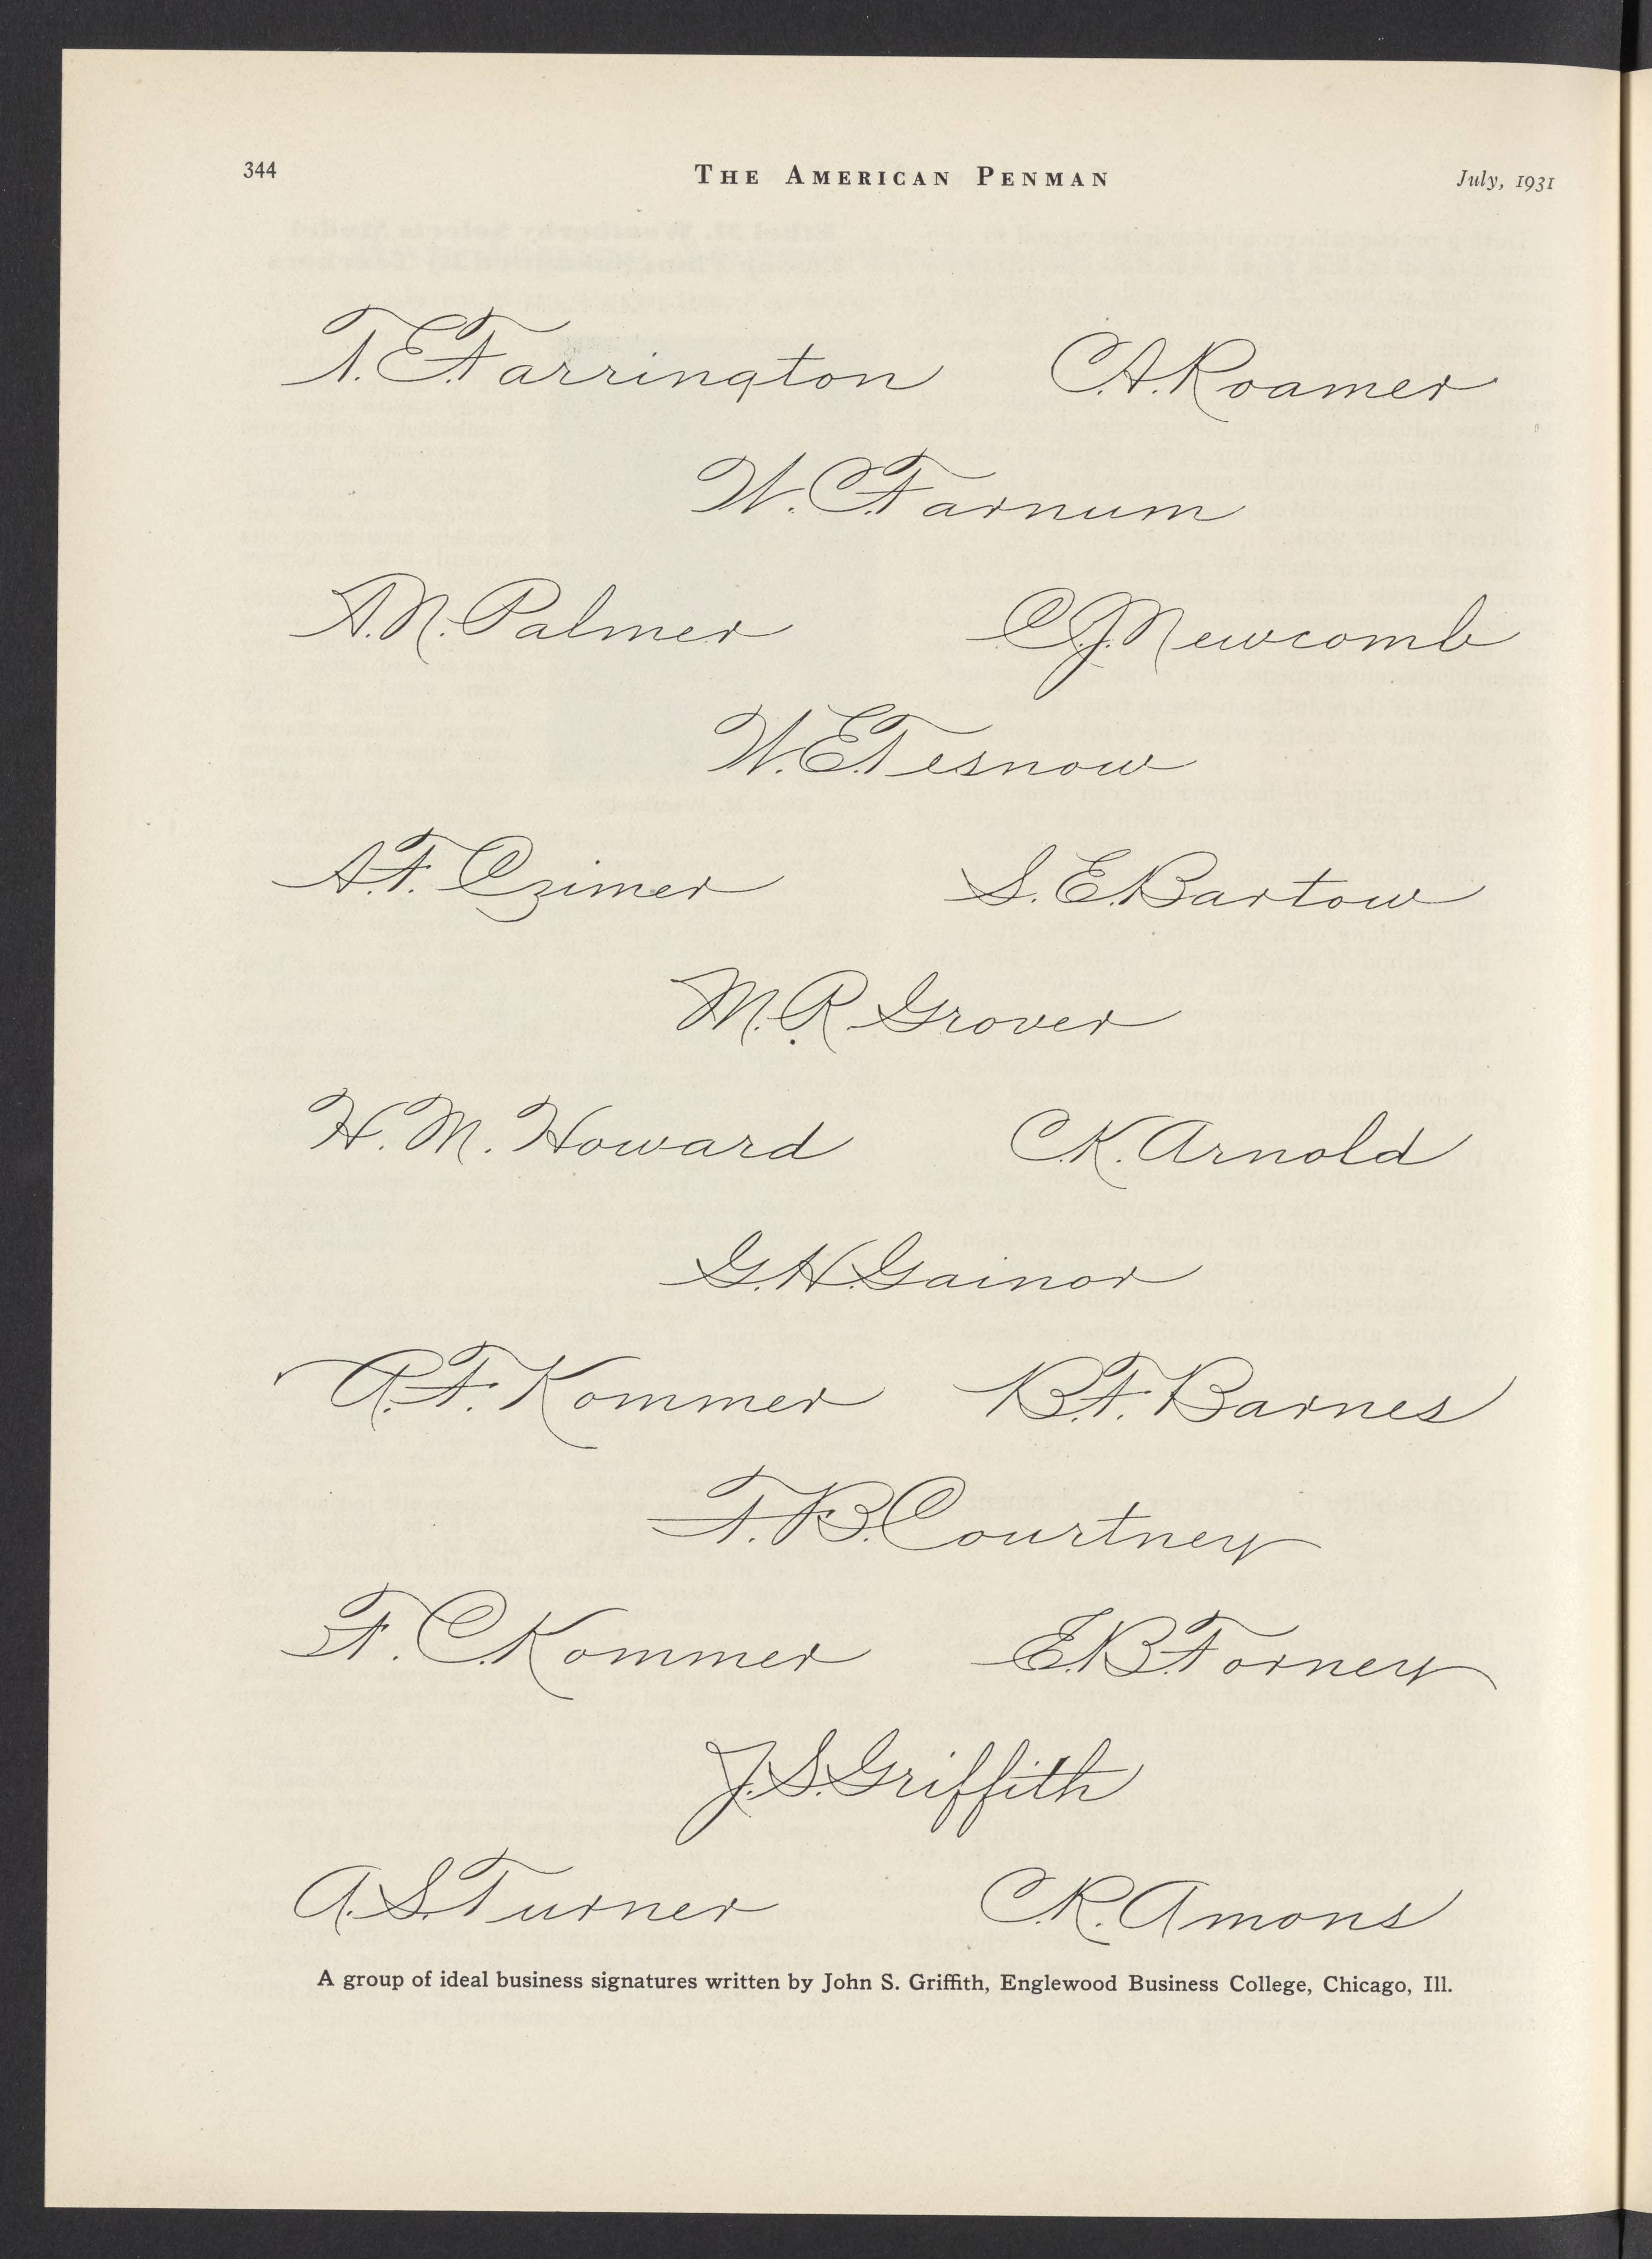 344 THE AMERICAN PENMAN July, 1931
T. E. Farrington C. A. Roamer
W. C. Farnum
A. N. Palmer C. J. Newcomb
W. E. Tesnow
A. F. Czimer S. E. Bartow
M. R. Grover
H. M. Howard C. K. Arnold
G. H. Gainor
R. F. Kommer B. F. Barnes
F. B. Courtney
F. C. Kommer E. B. Forney
J. S. Griffith
A. S. Turner C. R. Amons
A group of ideal business signatures written by John S. Griffith, Englewood Business College, Chicago, Ill.